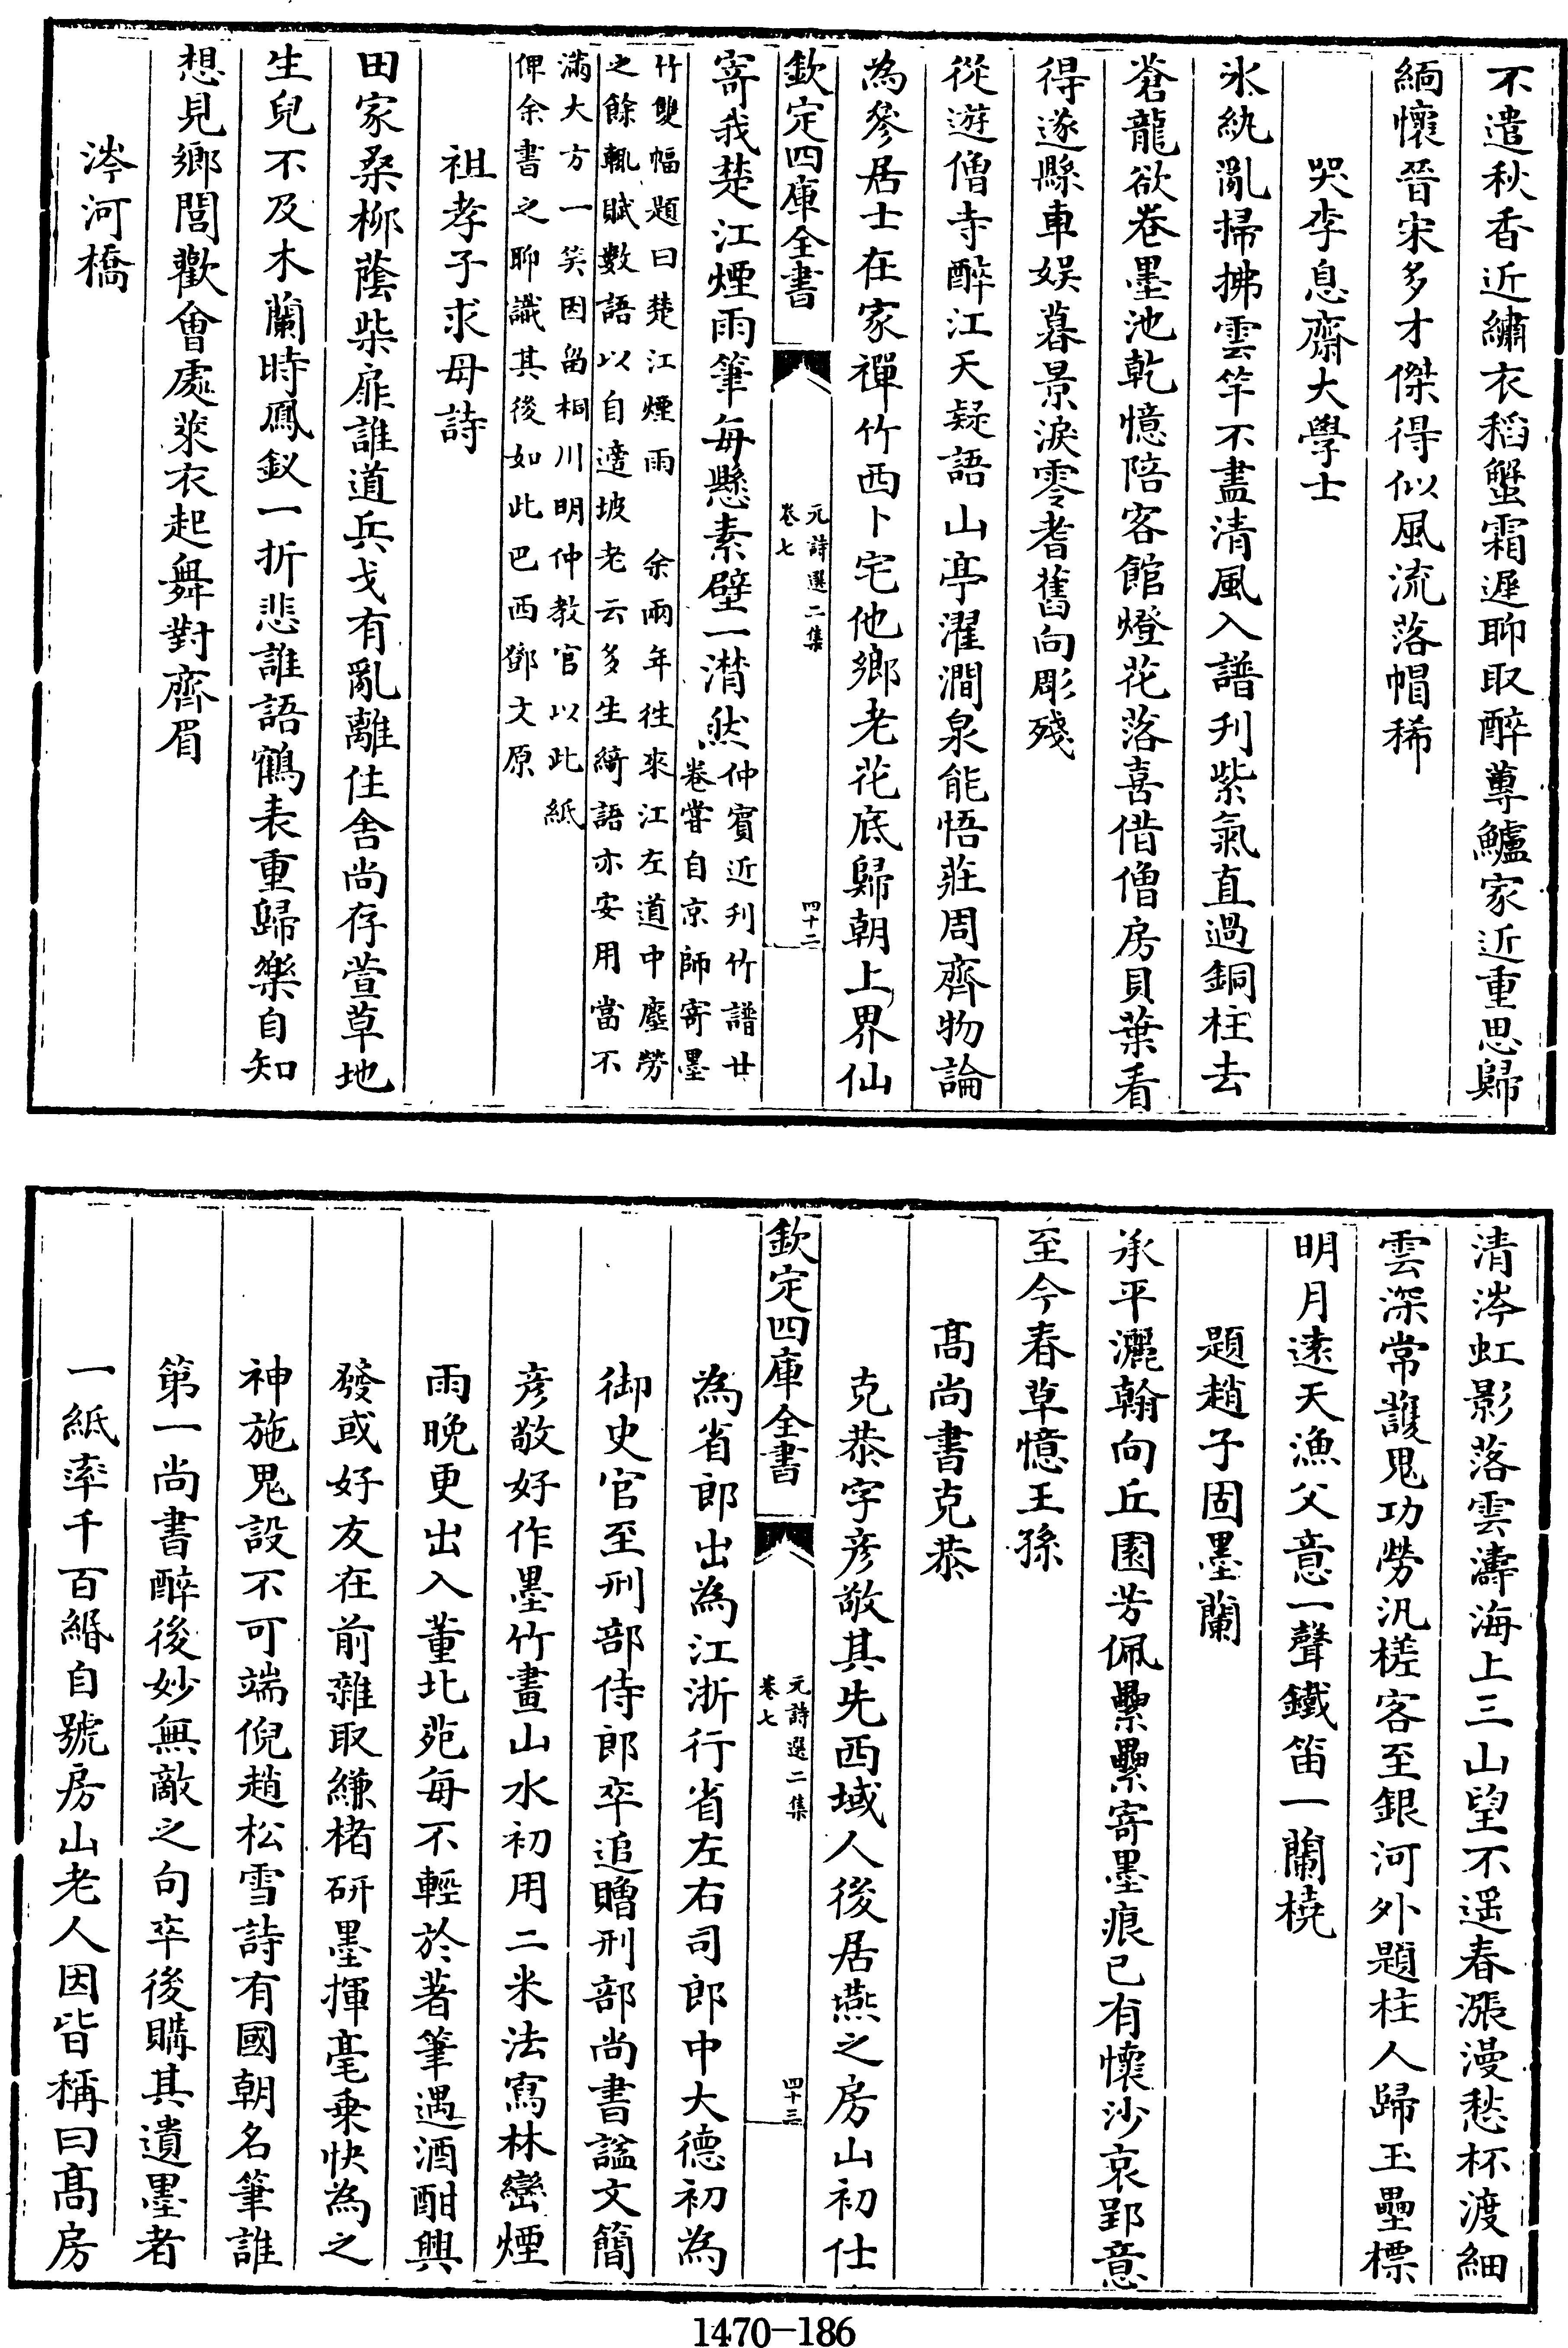 不遣秋香近繡衣稻蟹霜遲聊取醉蓴鱸家近重思歸
緬懷晉宋多才傑得似風流落帽稀
哭李息齋大學士
氷紈亂掃拂雲竿不盡清風入譜刋紫氣直過銅柱去
蒼龍欲卷墨池乾憶陪客館燈花落喜借僧房貝葉看
得遂縣車娱暮景淚零耆舊向彫殘
從遊僧寺醉江天疑語山亭濯澗泉能悟莊周齊物論
為參居士在家禪竹西卜宅他鄉老花底歸朝上界仙
欽定四庫全書
元詩選二集
卷七
四十二
寄我楚江煙雨筆每懸素壁一潸然
仲賓近刋竹譜廿
卷嘗自京師寄墨
竹雙幅題曰楚江煙雨　余兩年往來江左道中塵勞
之餘輒賦數語以自遣坡老云多生綺語亦安用當不
滿大方一笑因留桐川明仲教官以此紙
俾余書之聊識其後如此巴西鄧文原
祖孝子求母詩
田家桑柳蔭柴扉誰道兵戈有亂離住舍尚存萱草地
生兒不及木蘭時鳳釵一折悲誰語鶴表重歸樂自知
想見鄉閭歡會處萊衣起舞對齊眉
涔河橋
清涔虹影落雲濤海上三山望不遥春漲漫愁杯渡細
雲深常護鬼功勞汎槎客至銀河外題柱人歸玉壘標
明月逺天漁父意一聲鐵笛一蘭橈
題趙子固墨蘭
承平灑翰向丘園芳佩纍纍寄墨痕已有懷沙哀郢意
至今春草憶王孫
髙尚書克恭
克恭字彦敬其先西域人後居燕之房山初仕
欽定四庫全書
元詩選二集
卷七
四十三
為省郎出為江浙行省左右司郎中大德初為
御史官至刑部侍郎卒追贈刑部尚書謚文簡
彦敬好作墨竹畫山水初用二米法寫林巒煙
雨晩更出入董北苑每不輕於著筆遇酒酣興
發或好友在前雜取縑楮研墨揮毫乗快為之
神施鬼設不可端倪趙松雪詩有國朝名筆誰
第一尚書醉後妙無敵之句卒後購其遺墨者
一紙率千百緡自號房山老人因皆稱曰髙房
1470-186